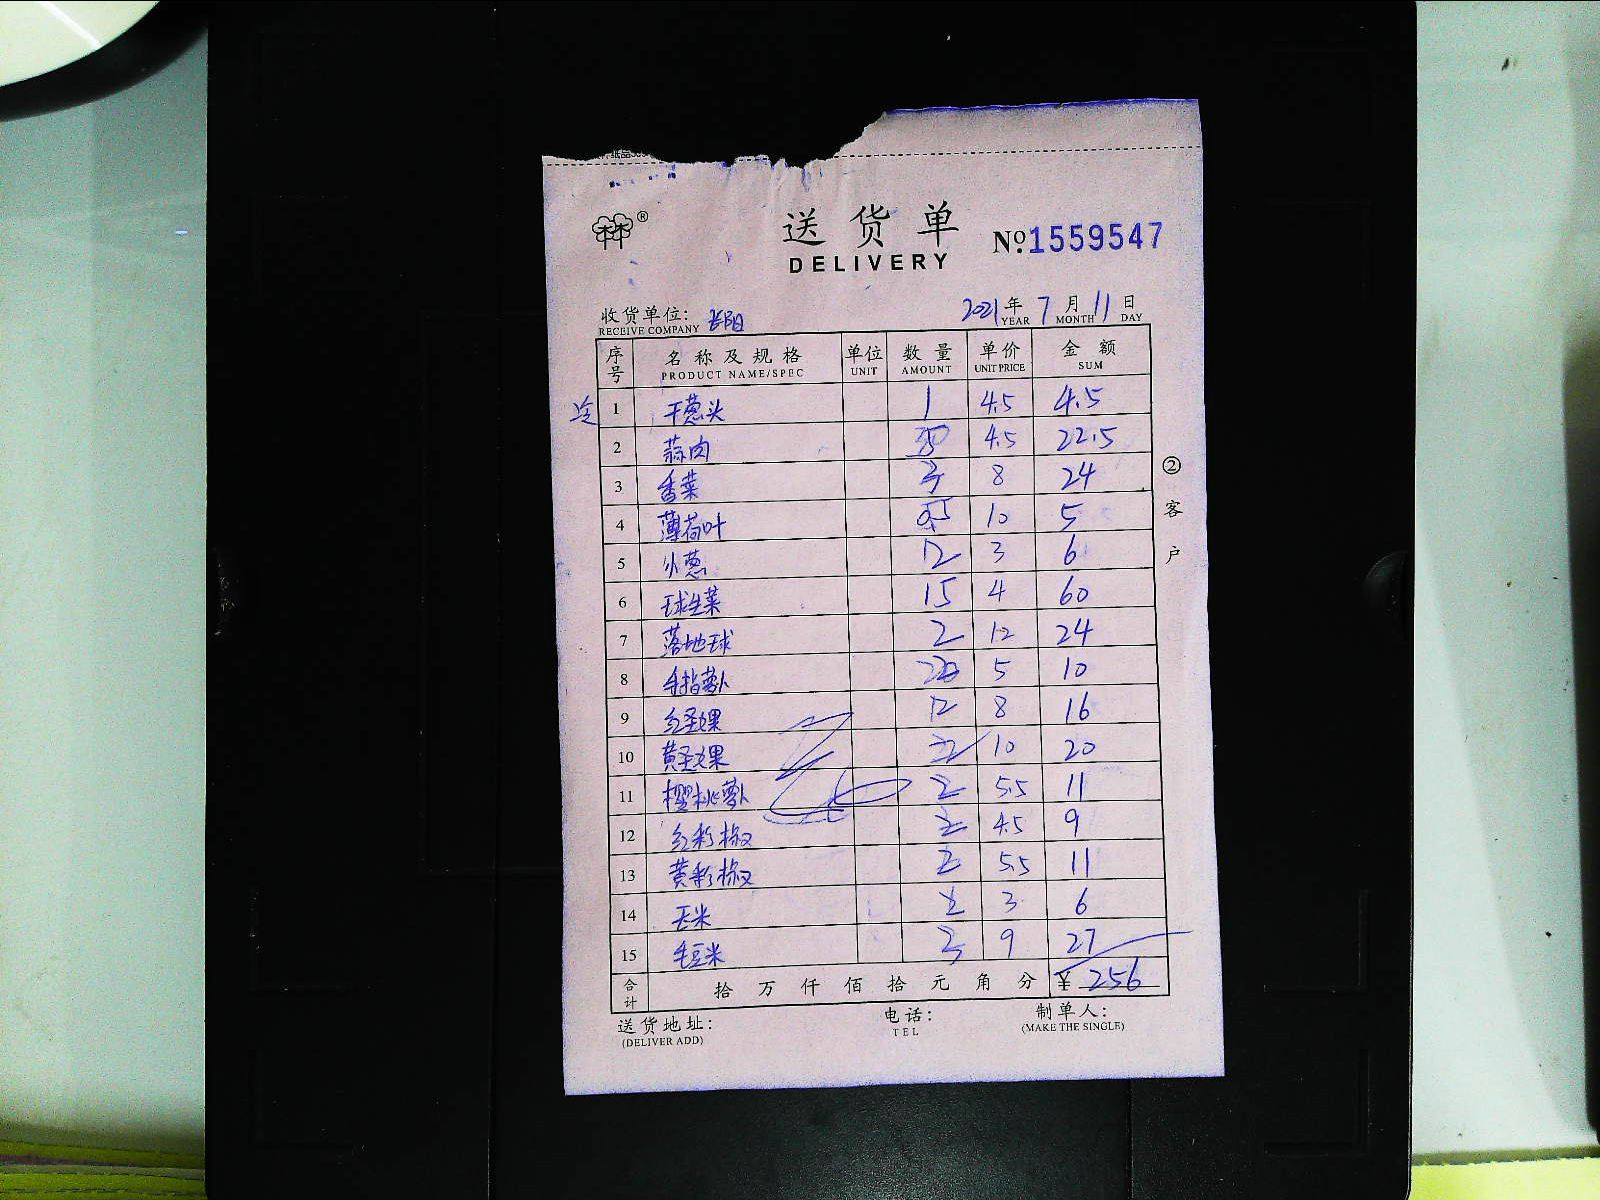 送货单
DELIVERY
№ 1559547
收货单位: 长阳 2021年 7月 11日
RECEIVE COMPANY YEAR MONTH DAY
序号 名称及规格 单位 数量 单价 金额
PRODUCT NAME/SPEC UNIT AMOUNT UNIT PRICE SUM
1 干葱头 1 4.5 4.5
2 蒜肉 4.5 22.5
3 香菜 3 8 24
4 薄荷叶 0.5 10 5
5 小葱 2 3 6
6 球生菜 15 4 60
7 落地球 2 12 24
8 手指萝卜 2 5 10
9 红圣女果 2 8 16
10 黄圣女果 2 10 20
11 樱桃萝卜 2 5.5 11
12 红彩椒 2 4.5 9
13 黄彩椒 2 5.5 11
14 玉米 2 3 6
15 毛豆米 3 9 27
合计 拾 万 仟 佰 拾 元 角 分 ¥ 256
送货地址: 电话: 制单人:
(DELIVER ADD) TEL (MAKE THE SINGLE)
② 客户